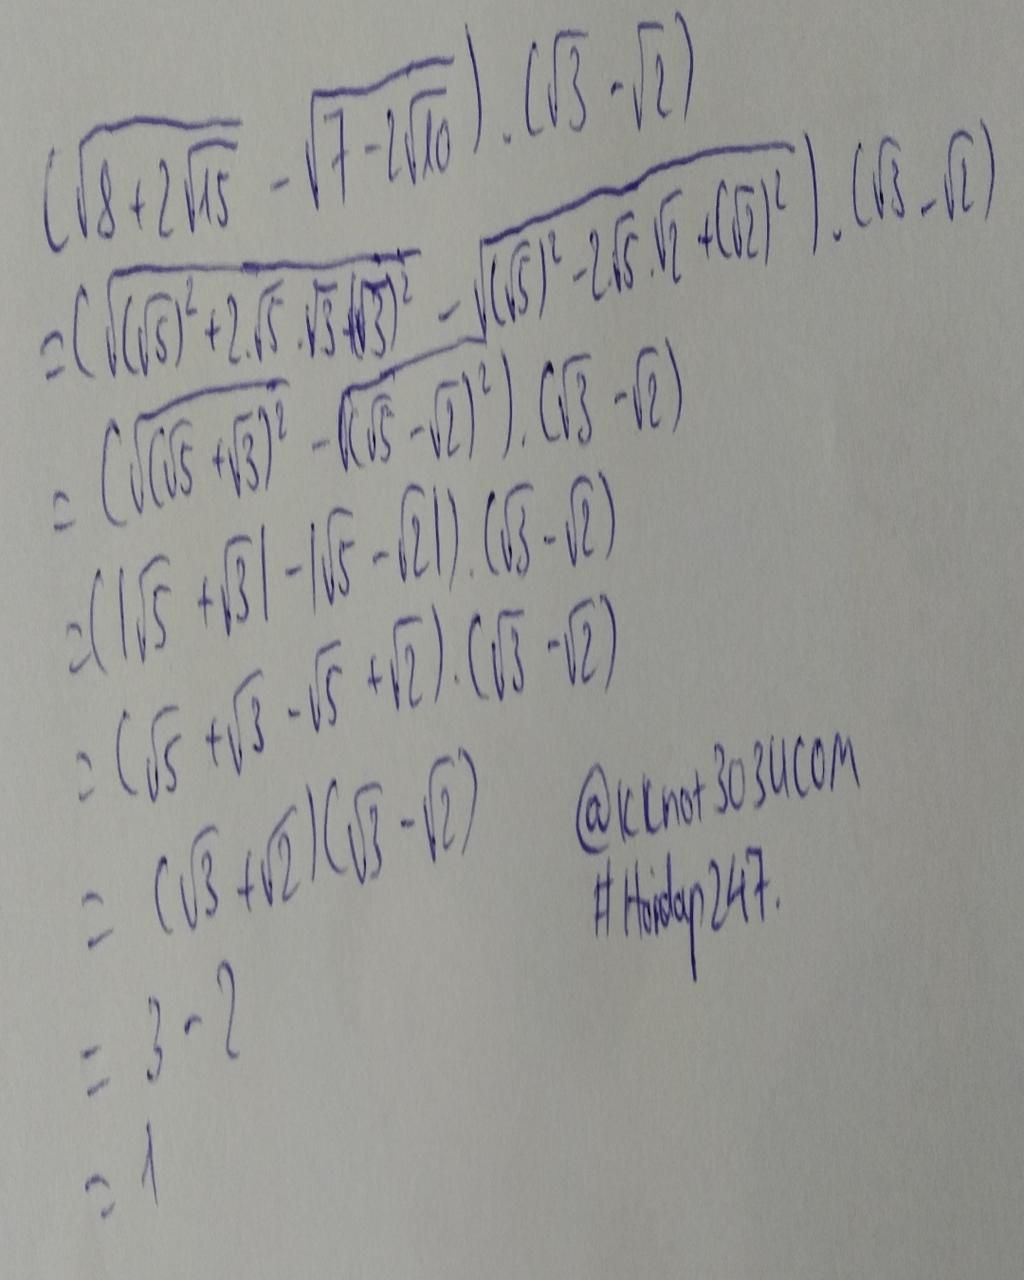 (√(8+2√15) - √(7-2√10)) . (√3 - √2)
= (√((√5)² + 2.√5.√3 + (√3)²) - √((√5)² - 2.√5.√2 + (√2)²)) . (√3 - √2)
= (√((√5 + √3)²) - √((√5 - √2)²)) . (√3 - √2)
= (|√5 + √3| - |√5 - √2|) . (√3 - √2)
= (√5 + √3 - √5 + √2) . (√3 - √2)
= (√3 + √2)(√3 - √2)
= 3 - 2
= 1
@kknot3034COM
#Hoidap247.